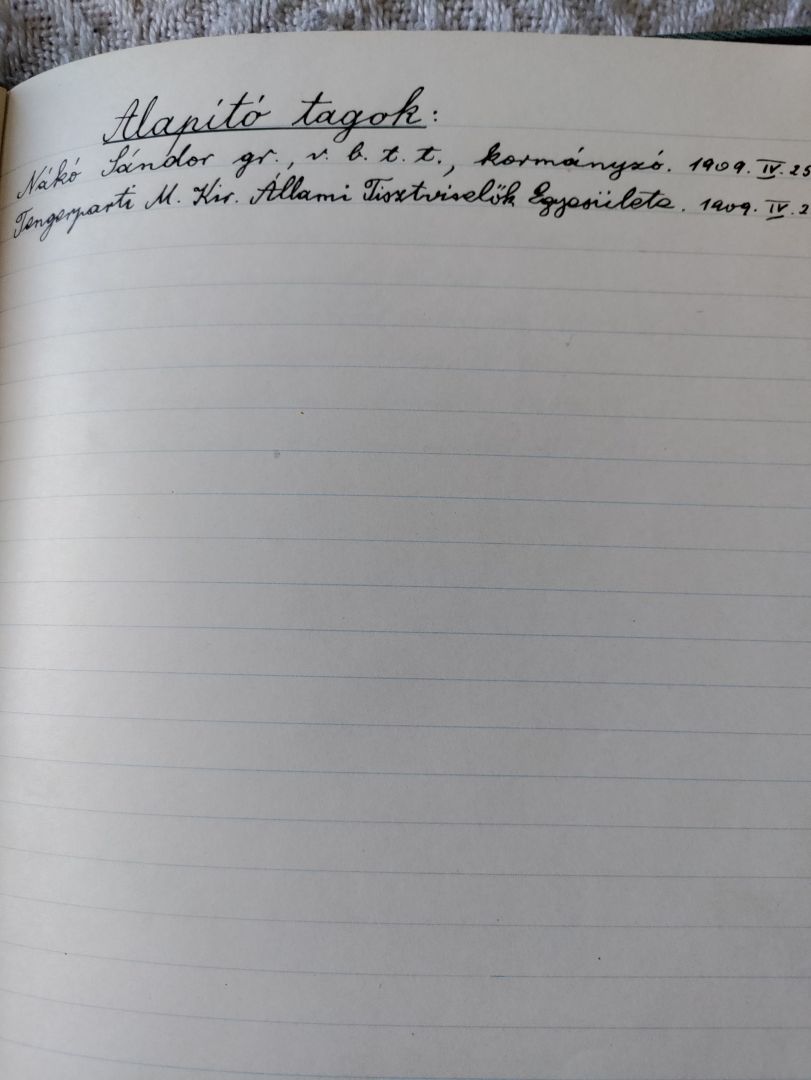 Alapító tagok:
Nákó Sándor gr., v. b. t. t., kormányzó. 1909. IV. 25
Tengerparti M. Kir. Állami Tisztviselők Egyesülete. 1909. IV. 2